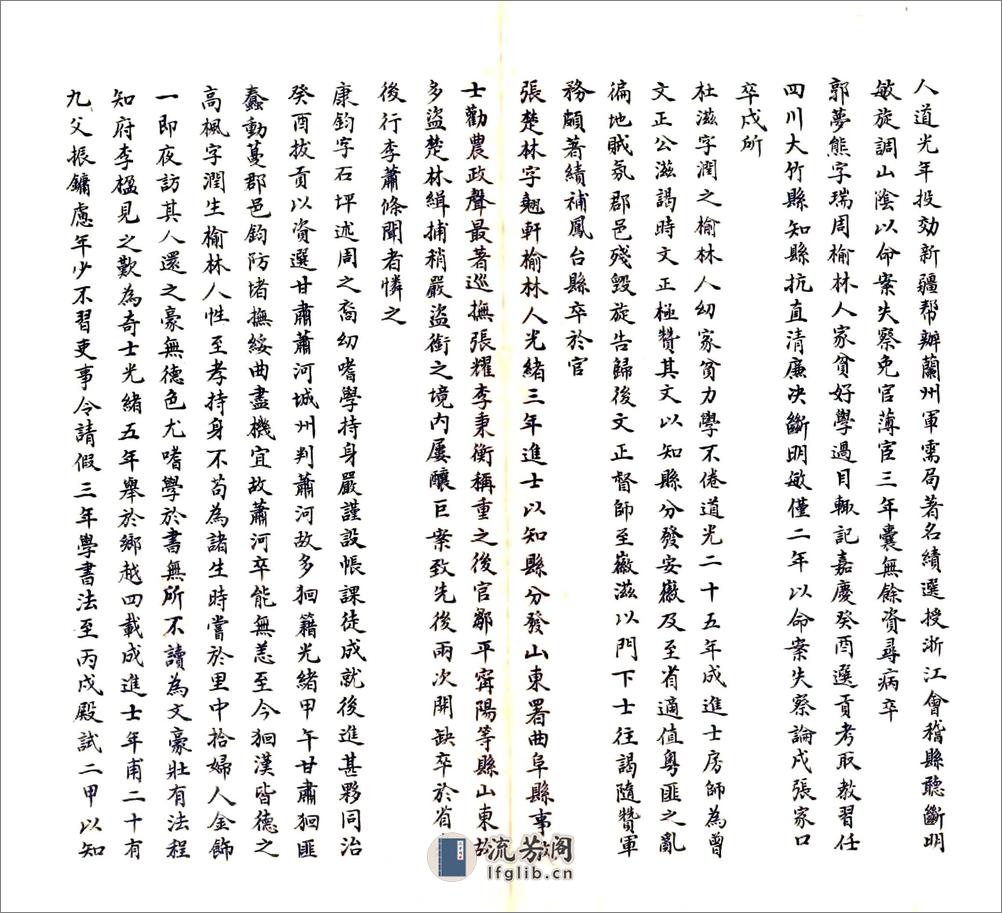 人道光年投効新疆帮辦蘭州軍需局著名績選授浙江會稽縣聽斷明
敏旋調山陰以命案失察免官薄宦三年囊無餘資尋病卒
郭夢熊字瑞周榆林人家貧好學過目輒記嘉慶癸酉選貢考取教習任
四川大竹縣知縣抗直清廉決斷明敏僅二年以命案失察論戍張家口
卒戍所
杜滋字潤之榆林人幼家貧力學不倦道光二十五年成進士房師為曾
文正公滋謁時文正極贊其文以知縣分發安徽及至省適值粵匪之亂
徧地賊氛郡邑殘毀旋告歸後文正督師至徽滋以門下士往謁隨贊軍
務頗著績補鳳台縣卒於官
張楚林字翹軒榆林人光緒三年進士以知縣分發山東署曲阜縣事
士勸農政聲最著巡撫張耀李秉衡稱重之後官鄒平甯陽等縣山東故
多盜楚林緝捕稍嚴盜銜之境內屢釀巨案致先後兩次開缺卒於省
後行李蕭條聞者憐之
康鈞字石坪述周之裔幼嗜學持身嚴謹設帳課徒成就後進甚夥同治
癸酉拔貢以資選甘肅蕭河城州判蕭河故多狪籍光緒甲午甘肅狪匪
蠢動蔓郡邑鈞防堵撫綏曲盡機宜故蕭河卒能無恙至今狪漢皆德之
高楓字潤生榆林人性至孝持身不苟為諸生時嘗於里中拾婦人金飾
一即夜訪其人還之豪無德色尤嗜學於書無所不讀為文豪壯有法程
知府李楹見之歎為奇士光緒五年舉於鄉越四載成進士年甫二十有
九父振鏞慮年少不習吏事令請假三年學書法至丙戌殿試二甲以知
流芳阁
lfglib.cn